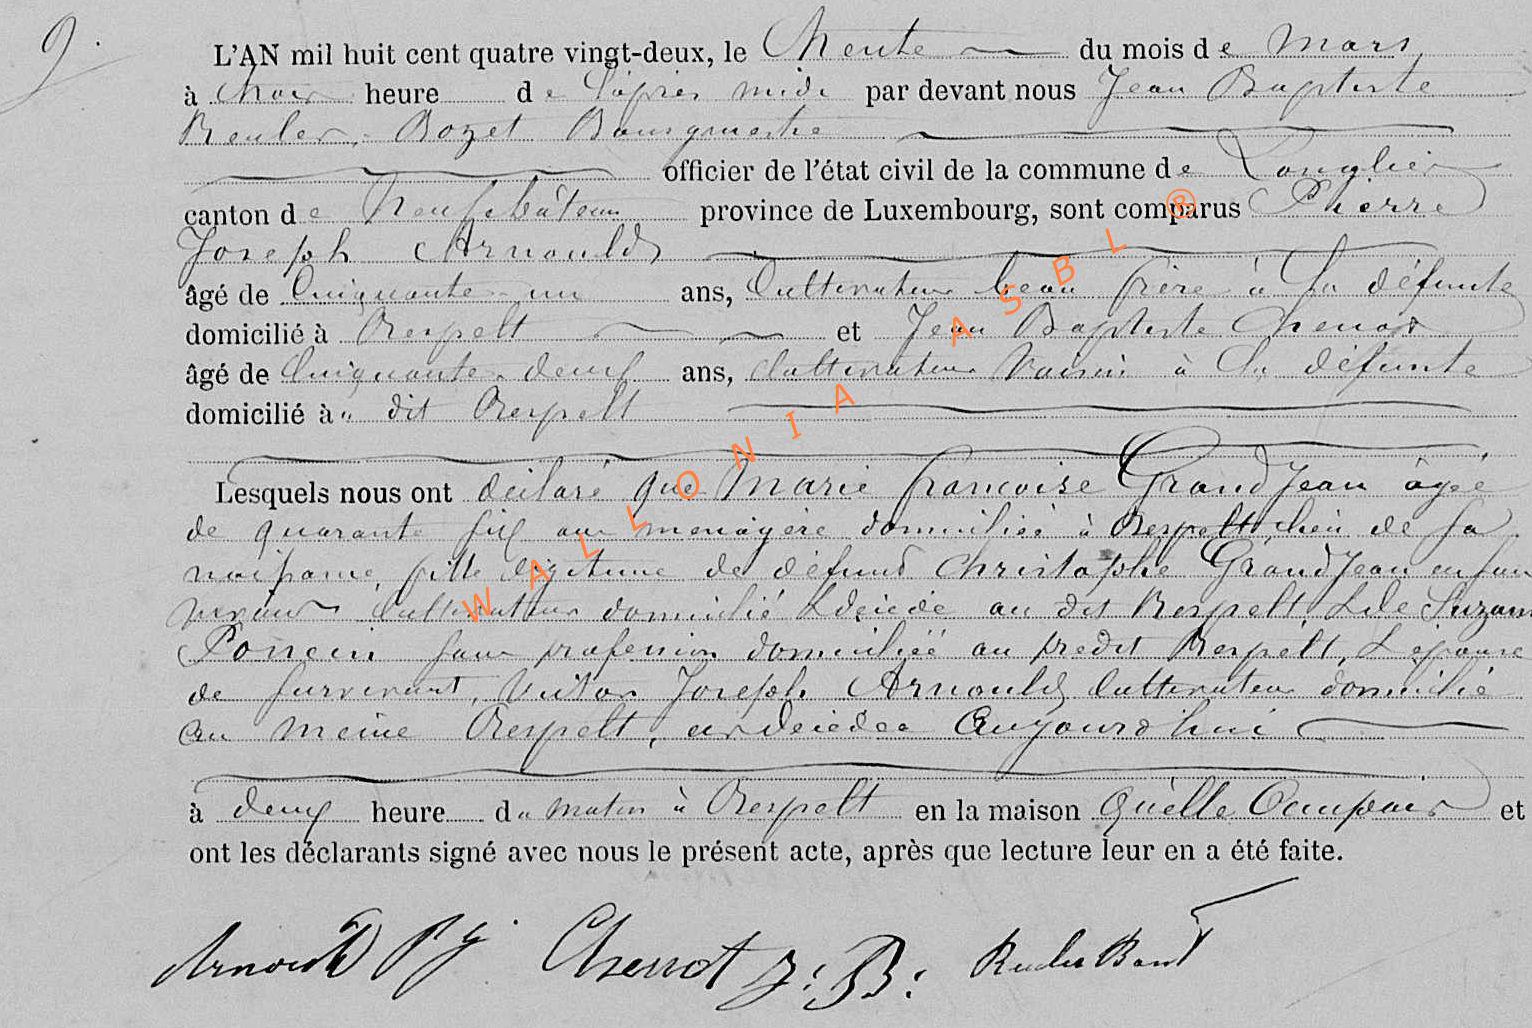 9.
L'AN mil huit cent quatre vingt-deux, le trente du mois de mars
à trois heure de l'après midi par devant nous Jean Baptiste
Reuler-Bozet Bourgmestre
officier de l'état civil de la commune de Longlier
canton de Neufchâteau province de Luxembourg, sont comparus Pierre
Joseph Arnould
âgé de Cinquante un ans, Cultivateur beau frère à la défunte
domicilié à Respelt et Jean Baptiste Chenot
âgé de Cinquante deux ans, Cultivateur voisin à la défunte
domicilié à u dit Respelt
Lesquels nous ont déclaré que Marie françoise GrandJean âgée
de quarante six ans menagère domiciliée à Respelt, lieu de sa
naissance, fille légitime de défunt Christophe GrandJean en son
vivant Cultivateur domicilié & décédé au dit Respelt, & de Suzanne
Poncin sans profession domiciliée au predit Respelt, & épouse
de survivant, Victor Joseph Arnould Cultivateur domicilié
au meme Respelt, est décédée aujourd'hui
à deux heure du matin à Respelt en la maison qu'elle Occupait et
ont les déclarants signé avec nous le présent acte, après que lecture leur en a été faite.
Arnould PJ. Chenot J:B: Reuler Bozet
WALLONIA ASBL ®